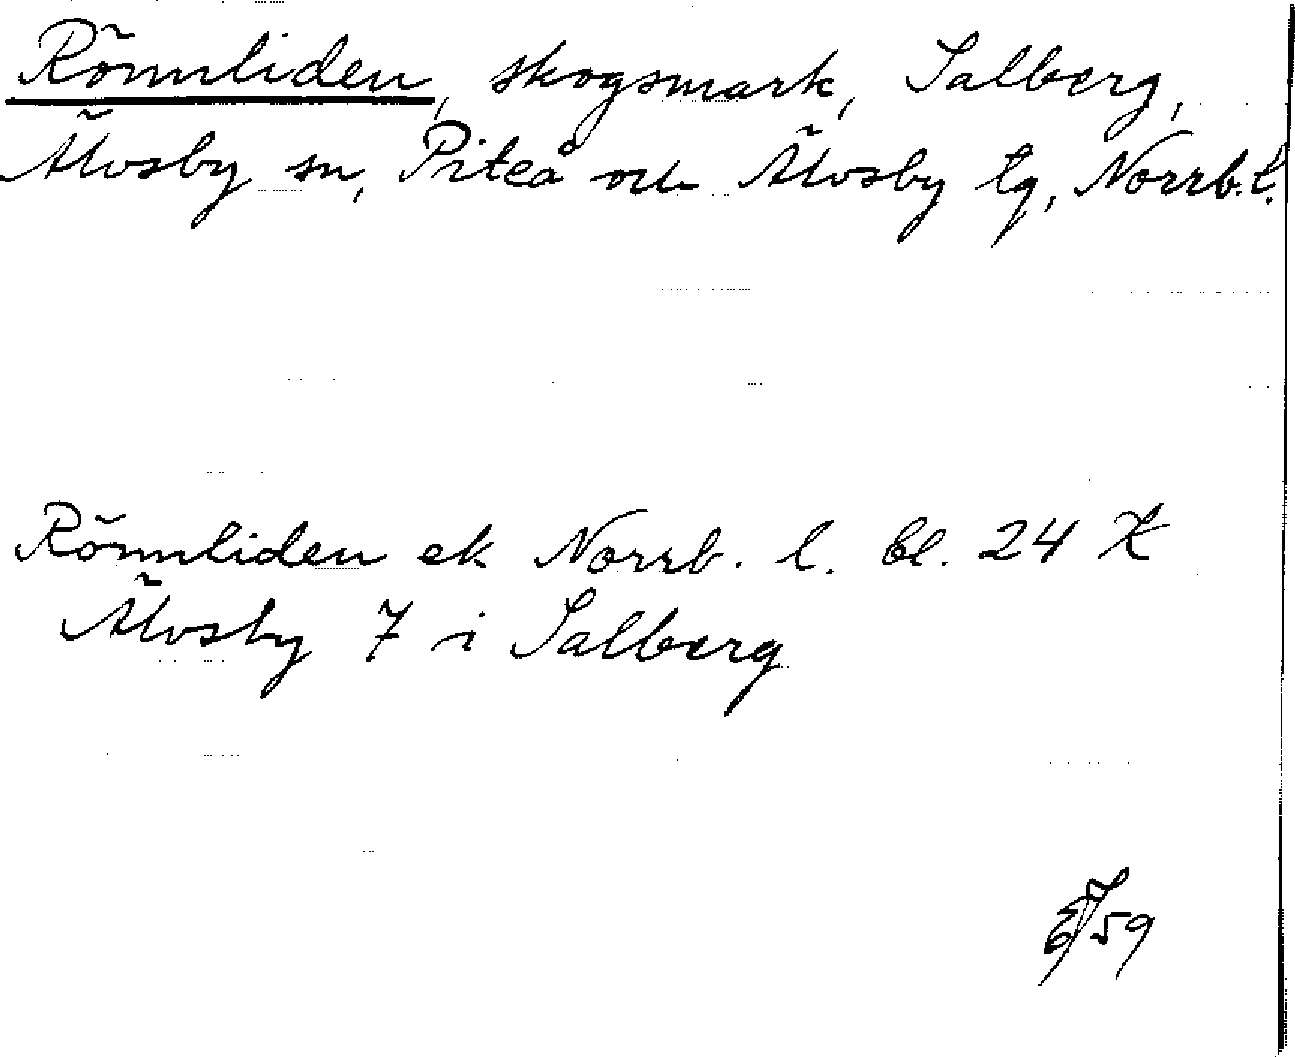 Rönnliden, skogsmark, Salberg,
Älvsby sn, Piteå och Älvsby tg, Norrb.l.
Rönnliden ek Norrb. l. bl. 24 K
Älvsby 7 i Salberg
59